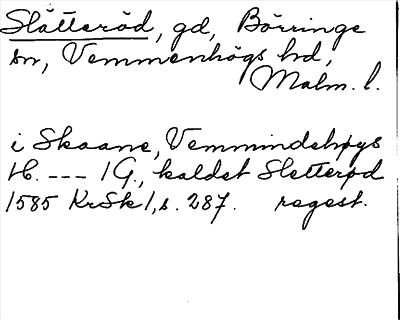 Slätteröd, gd, Börringe
sn, Vemmenhögs hd,
Malm. l.
i Skaane, Vemmindehøys
H. --- 1 G., kaldet Sletterød
1585 KrSk 1, s. 287. regest.